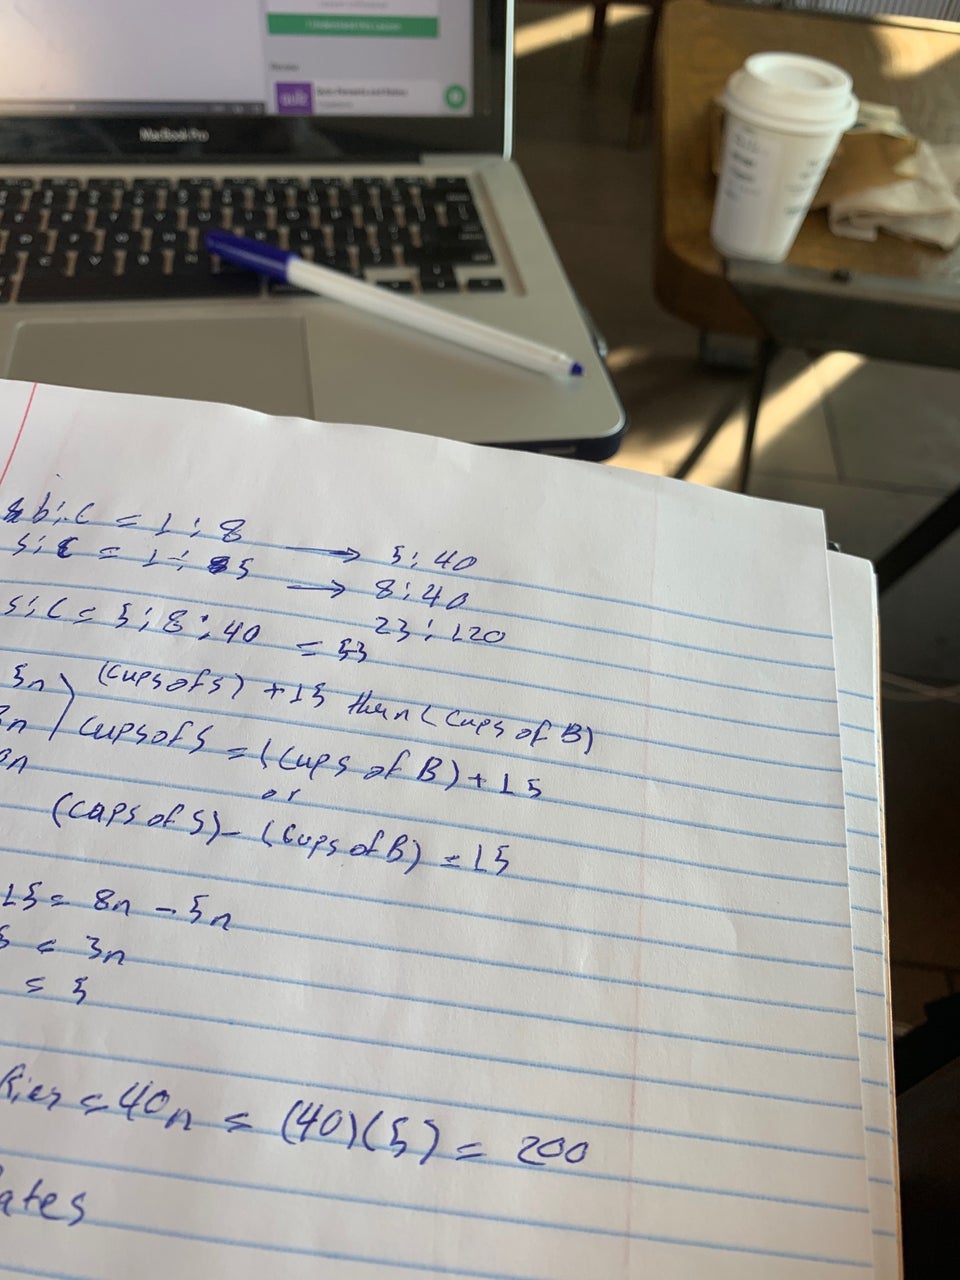 I Understand this Lesson
Review
quiz
MacBook Pro
b:c = 1:8 → 5:40
s:c = 1:5 → 8:40
23:120
s:c = 5:8:40 = 53
5n (cups of s) + 15 then (cups of B)
cups of s = (cups of B) + 15
or
(cups of s) - (cups of B) = 15
15 = 8n - 5n
5 = 3n
= 5
ries = 40n = (40)(5) = 200
ates